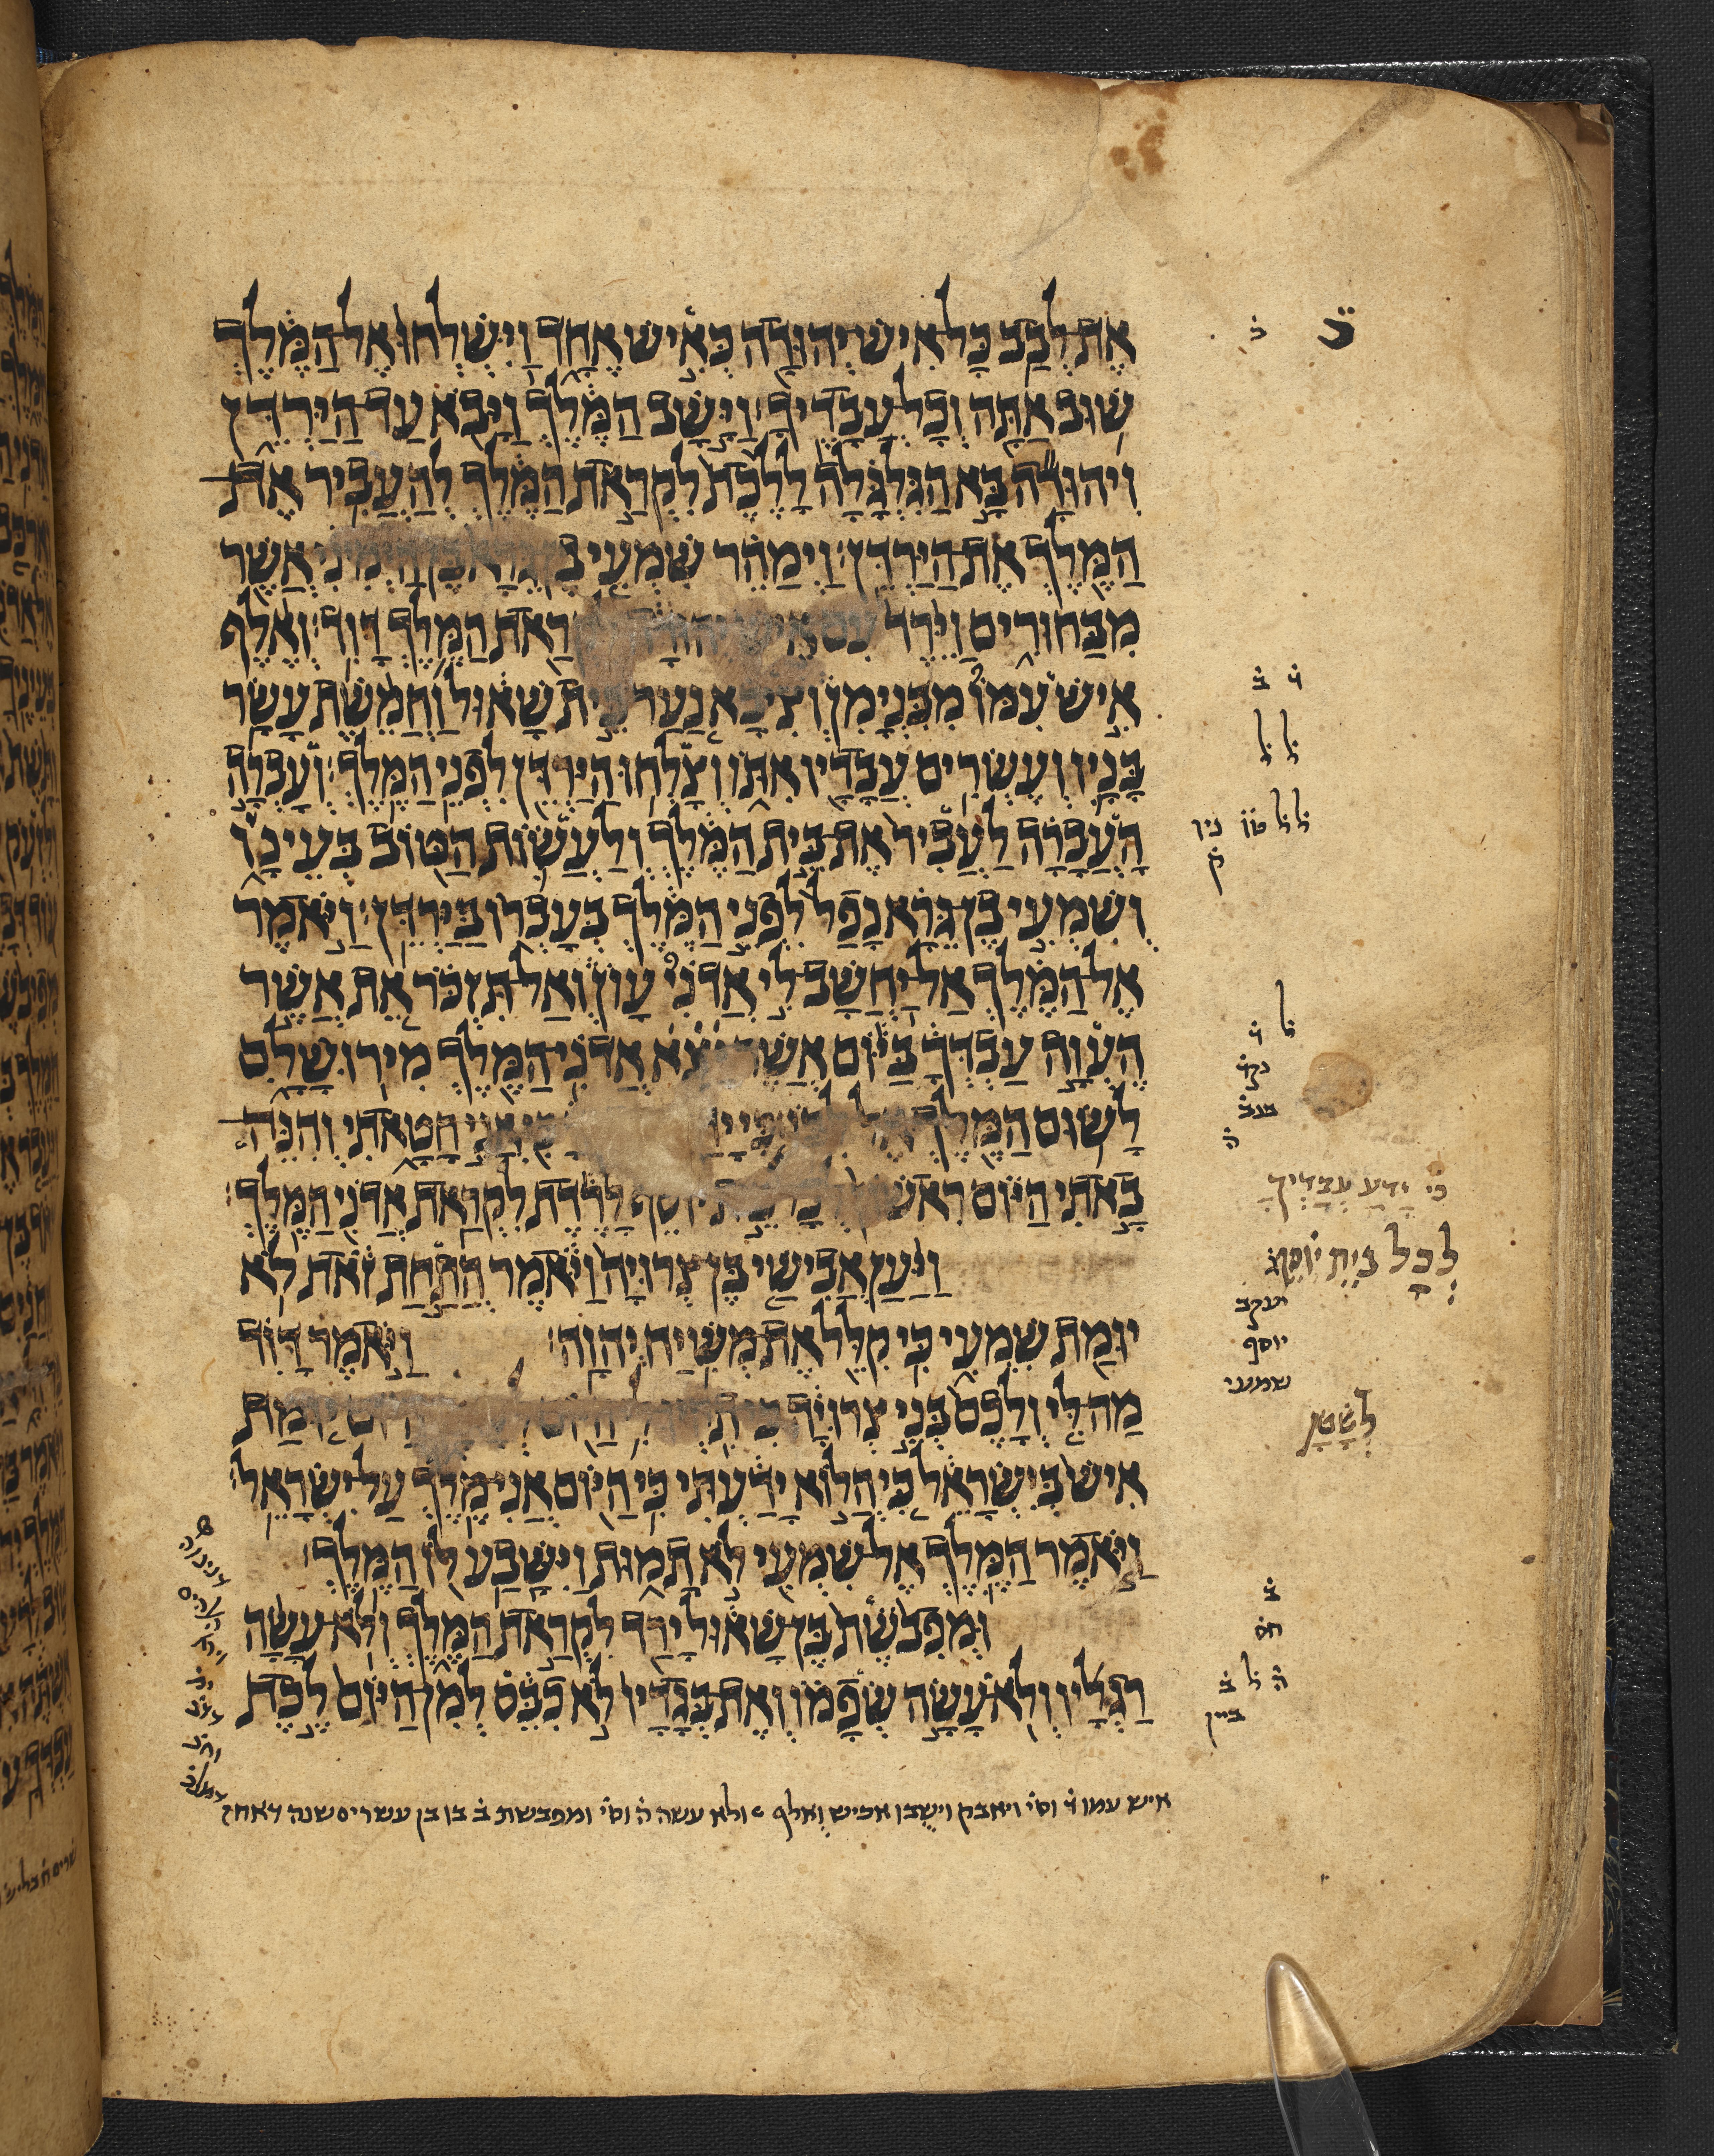 אֶת לְבַב כָּל אִישׁ יְהוּדָה כְּאִישׁ אֶחָד וַיִּשְׁלְחוּ אֶל הַמֶּלֶךְ
שׁוּב אַתָּה וְכָל עֲבָדֶיךָ׃ וַיָּשָׁב הַמֶּלֶךְ וַיָּבֹא עַד הַיַּרְדֵּן
וִיהוּדָה בָּא הַגִּלְגָּלָה לָלֶכֶת לִקְרַאת הַמֶּלֶךְ לְהַעֲבִיר אֶת
הַמֶּלֶךְ אֶת הַיַּרְדֵּן׃ וַיְמַהֵר שִׁמְעִי בֶּן גֵּרָא בֶּן הַיְמִינִי אֲשֶׁר
מִבַּחוּרִים וַיֵּרֶד עִם אִישׁ יְהוּדָה רַאת הַמֶּלֶךְ דָּוִד׃ וְאֶלֶף
אִישׁ עִמּוֹ מִבִּנְיָמִן וְצִיבָא נַעַר בֵּית שָׁאוּל וַחֲמֵשֶׁת עָשָׂר
בָּנָיו וְעֶשְׂרִים עֲבָדָיו אִתּוֹ וְצָלְחוּ הַיַּרְדֵּן לִפְנֵי הַמֶּלֶךְ׃ וְעָבְרָה
הָעֲבָרָה לַעֲבִיר אֶת בֵּית הַמֶּלֶךְ וְלַעֲשׂוֹת הַטּוֹב בְּעֵינָו
וְשִׁמְעִי בֶן גֵּרָא נָפַל לִפְנֵי הַמֶּלֶךְ בְּעָבְרוֹ בַּיַּרְדֵּן׃ וַיֹּאמֶר
אֶל הַמֶּלֶךְ אַל יַחֲשָׁב לִי אֲדֹנִי עָוֹן וְאַל תִּזְכֹּר אֵת אֲשֶׁר
הֶעֱוָה עַבְדְּךָ בַּיּוֹם אֲשֶׁר יָצָא אֲדֹנִי הַמֶּלֶךְ מִירוּשָׁלָ͏ִם
לָשׂוּם הַמֶּלֶךְ אֶל לִבּוֹ׃ אֲנִי חָטָאתִי וְהִנֵּה
בָאתִי הַיּוֹם רִאשׁוֹן לְכָל בֵּית יוֹסֵף לָרֶדֶת לִקְרַאת אֲדֹנִי הַמֶּלֶךְ׃
וַיַּעַן אֲבִישַׁי בֶּן צְרוּיָה וַיֹּאמֶר הֲתַחַת זֹאת לֹא
יוּמַת שִׁמְעִי כִּי קִלֵּל אֶת מְשִׁיחַ יְהוָה׃ וַיֹּאמֶר דָּוִד
מַה לִּי וְלָכֶם בְּנֵי צְרוּיָה כִּי תִהְיוּ לִי הַיּוֹם לְשָׂטָן הַיּוֹם יוּמַת
אִישׁ בְּיִשְׂרָאֵל כִּי הֲלוֹא יָדַעְתִּי כִּי הַיּוֹם אֲנִי מֶלֶךְ עַל יִשְׂרָאֵל׃
וַיֹּאמֶר הַמֶּלֶךְ אֶל שִׁמְעִי לֹא תָמוּת וַיִּשָּׁבַע לוֹ הַמֶּלֶךְ׃
וּמְפִבֹשֶׁת בֶּן שָׁאוּל יָרַד לִקְרַאת הַמֶּלֶךְ וְלֹא עָשָׂה
רַגְלָיו וְלֹא עָשָׂה שְׂפָמוֹ וְאֶת בְּגָדָיו לֹא כִבֵּס לְמִן הַיּוֹם לֶכֶת
כִּי יָדַע עַבְדְּךָ
לְכָל בֵּית יוֹסֵף
יעקב
יוסף
שמעני
לְשָׂטָן
איש עמו וס׳ ויאבק וישבן אכיש ואלף ולא עשה ה׳ וס׳ ומפבשת ב׳ בן עשרים שנה דאחז